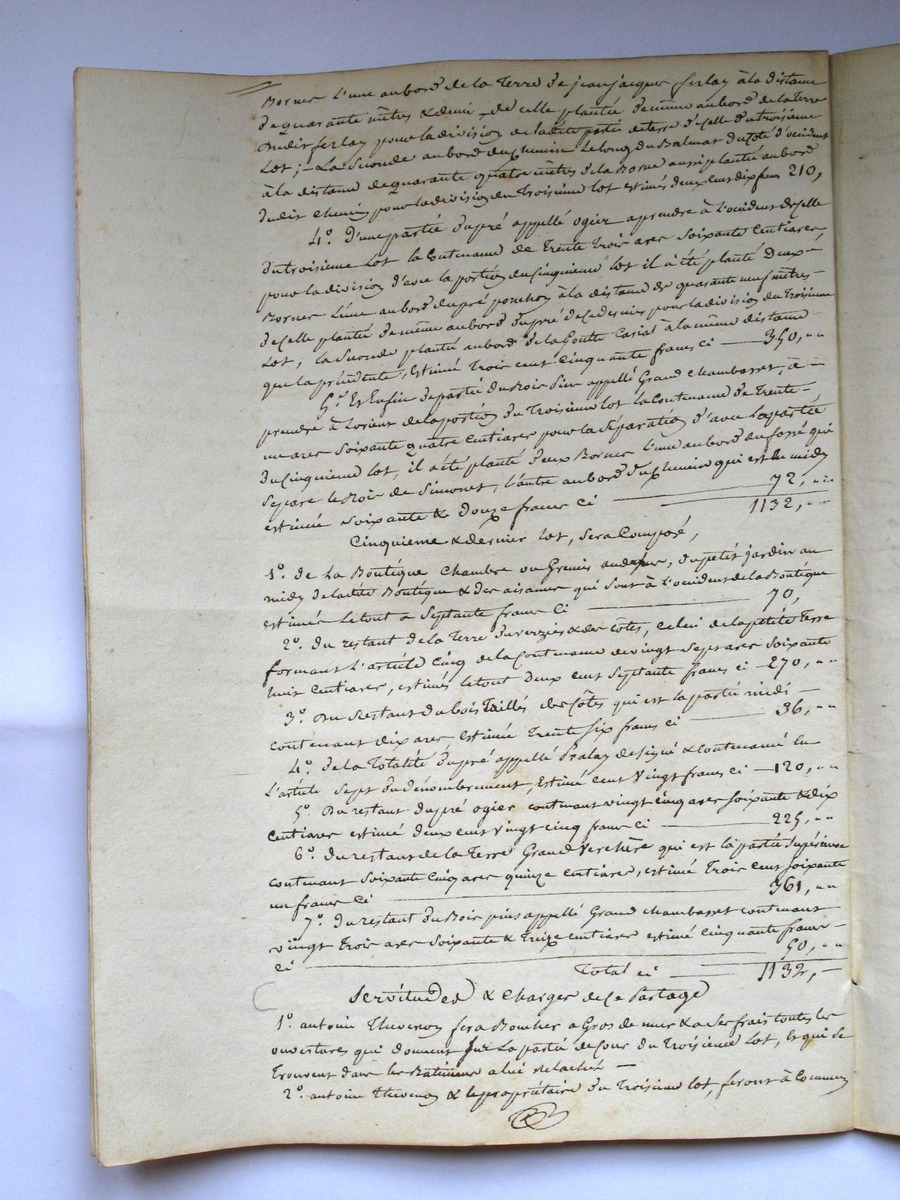 Bornes l'une au bord de la Terre de jean jacques ferlay à la distance
de quarante mètres & demi, de celle plantée de même au bord de la Terre
dudit ferlay pour la division de ladite partie de terre de celle du troisième
Lot; - La Seconde au bord du chemin Le long du Balmat du Côté d'occident
à la distance de quarante quatre mètres de la Borne aussi plantée au bord
dudit chemin pour la division du Troisième lot estimés deux cent dix francs 210,
4.° D'une partie du pré appellé ogier a prendre à L'occident de celle
du troisième Lot la Contenance de Trente Trois ares Soixante Centiares,
pour la division d'avec la portion du Cinquième lot il a été planté deux
Bornes L'une au bord du pré ponchon à la distance de quarante neuf mètres
de celle plantée de même au bord du pré de ce dernier pour la division du Troisième
Lot, la Seconde plantée au bord de la Goutte à la même distance
que la précédente, Estimé Trois cent Cinquante francs ci — 350, " "
5.° Et Enfin de partie du Bois pin appellé Grand Chambasset, à
prendre à Lorient de la portion du Troisième lot la Contenance de Trente
un ares Soixante quatre Centiares pour la Séparation d'avec la partie
du Cinquième lot, il a été planté deux Bornes L'une au bord du fossé qui
Sépare le Bois de Simonet, l'autre au bord du chemin qui est de midy
estimée Soixante & douze francs Ci — 72, " "
1132, " "
Cinquieme & dernier lot, Sera Composé,
1.° de La Boutique Chambre ou Grenier au dessus, du petit jardin au
midy de ladite Boutique & des aisances qui Sont à L'occident de la Boutique
estimés Le tout a Septante francs Ci — 70,
2.° du restant de la Terre du verzier & des côtes, Celui de la petite Terre
formant L'article Cinq de la Contenance de vingt Sept ares Soixante
huit Centiares, estimés le tout deux cent Septante francs ci — 270, " "
3.° du Restant du bois Taillés des Côtes qui est la partie midi
contenant dix ares estimé Trente Six francs ci — 36, " "
4.° de la Totalité du pré appellé Pralay designé & Contenancé En
L'article Sept du dénombrement, Estimé Cent Vingt francs ci — 120, " "
5.° Du restant du pré ogier contenant vingt cinq ares Soixante & dix
Centiares estimé deux cent Vingt cinq francs ci — 225, " "
6.° du restant de la Terre Grand Verchère qui est la partie Supérieure
contenant Soixante Cinq ares quinze Centiares, estimé Trois Cent Soixante
un francs Ci — 361, " "
7.° du restant du Bois pins appellé Grand Chambasset contenant
vingt Trois ares Soixante & Treize Centiares estimé Cinquante francs
Ci — 50, " "
Total ci — 1132, —
Servitudes & charges de ce Partage
1.° antoine Thevenon fera Boucher a Gros de mur & a Ses frais toutes les
ouvertures qui donnent sur La partie de Cour du Troisième Lot, & qui se
trouvent dans les Bâtiments a lui relachés —
2.° antoine Thevenon & le propriétaire du Troisième lot, feront à Commun